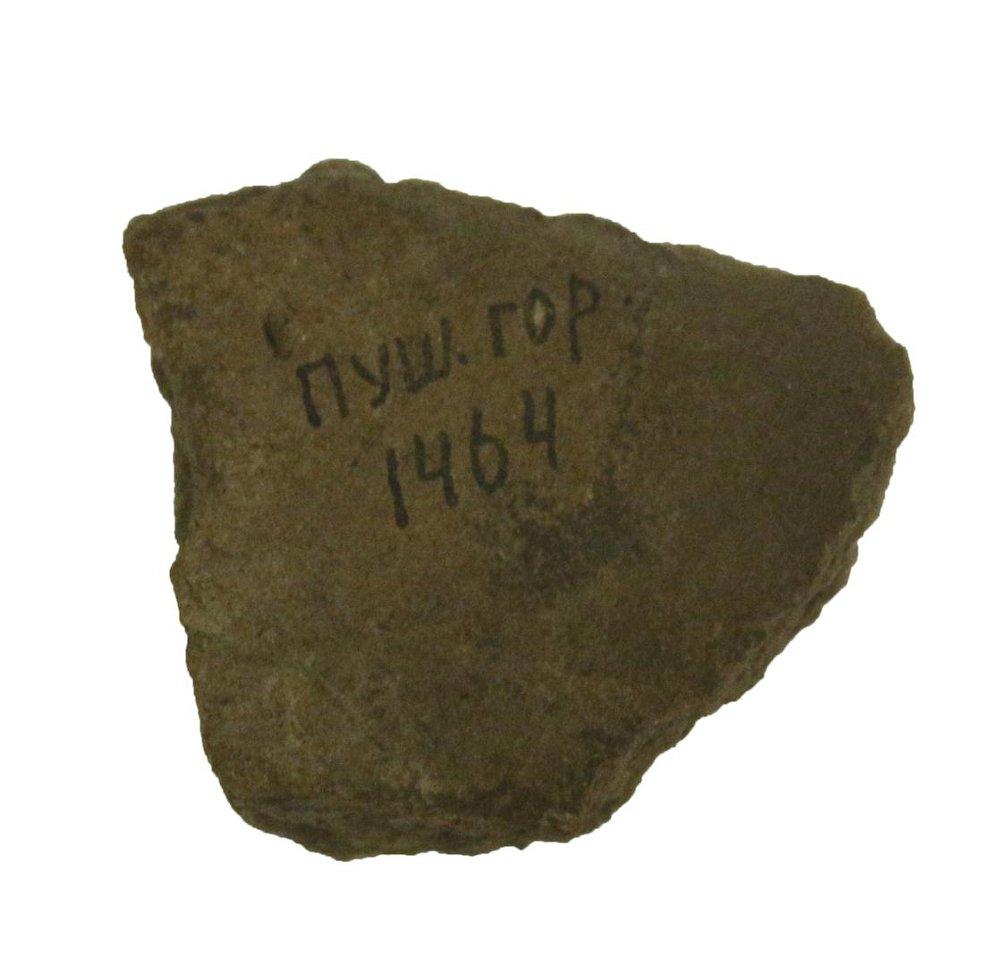 ПУШ. ГОР
1464